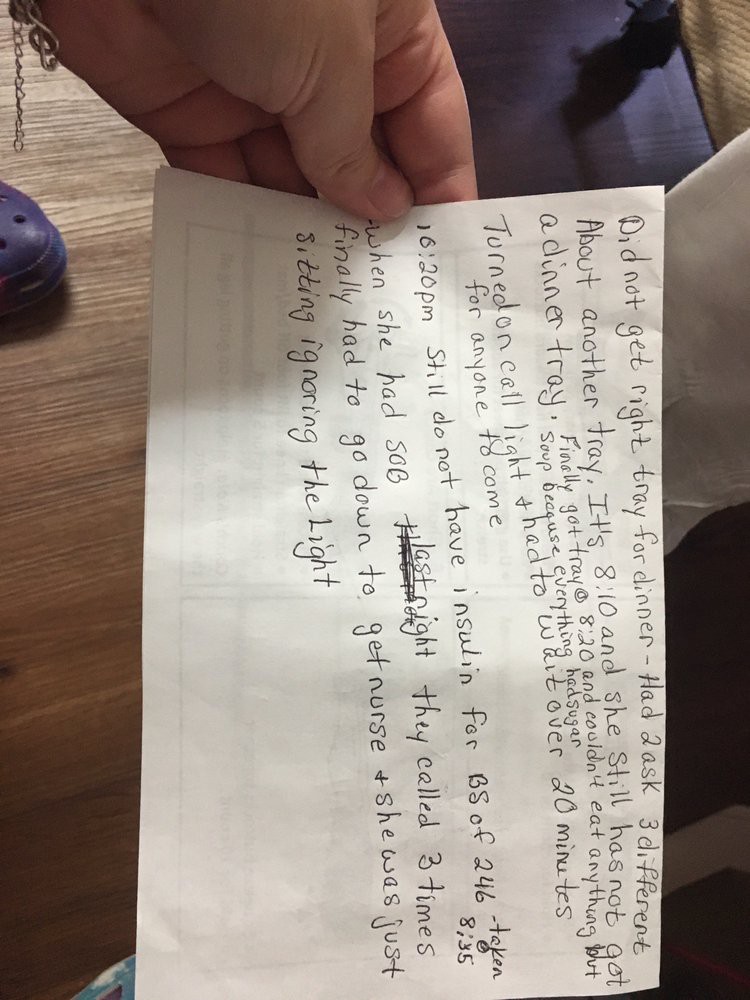 Did not get right tray for dinner - Had 2 ask 3 different
About another tray. It's 8:10 and she still has not got
a dinner tray. Finally got tray @ 8:20 and couldn't eat anything but
soup because everything had sugar
Turned on call light + had to wait over 20 minutes
for anyone to come
10:20pm Still do not have insulin for BS of 246 - taken @ 8:35
- when she had SOB last night they called 3 times
finally had to go down to get nurse + she was just
sitting ignoring the Light